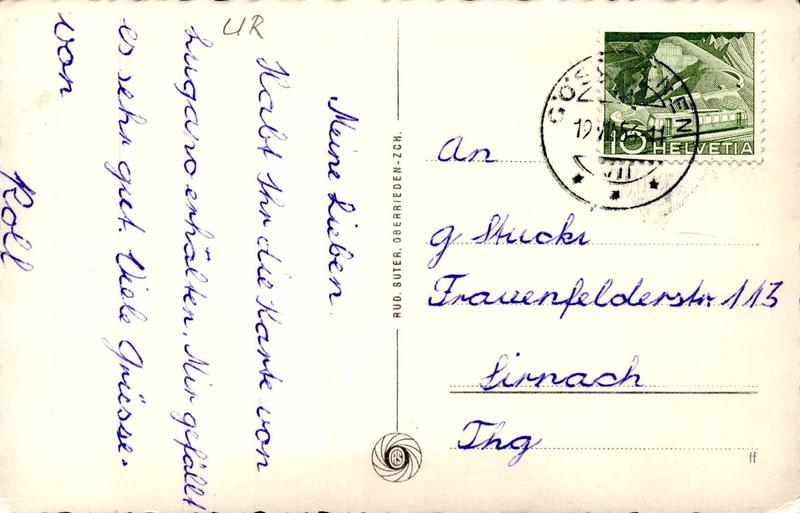 UR
Meine Lieben.
Habt Ihr die Karte von
Lugano erhalten. Mir gefällt
es sehr gut. Viele Grüsse.
von
Rolf
RUD. SUTER. OBERRIEDEN-ZCH.
GÖSCHENEN
10 HELVETIA
An
g Stucki
Frauenfelderstr. 113
Sirnach
Thg
ff